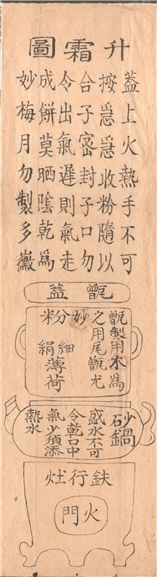 升霜圖
蓋上火熱手不可
按急急收粉隨以
合子密封子口勿
令出氣遲則氣走
成餅莫晒陰乾爲
妙梅月勿製多黴
甑蓋
甑製用木爲
之用瓦甑尤
妙
粉
細絹薄荷
砂鍋
盛水不可
令乾口中
氣少須添
熱水
鉄行灶
火門